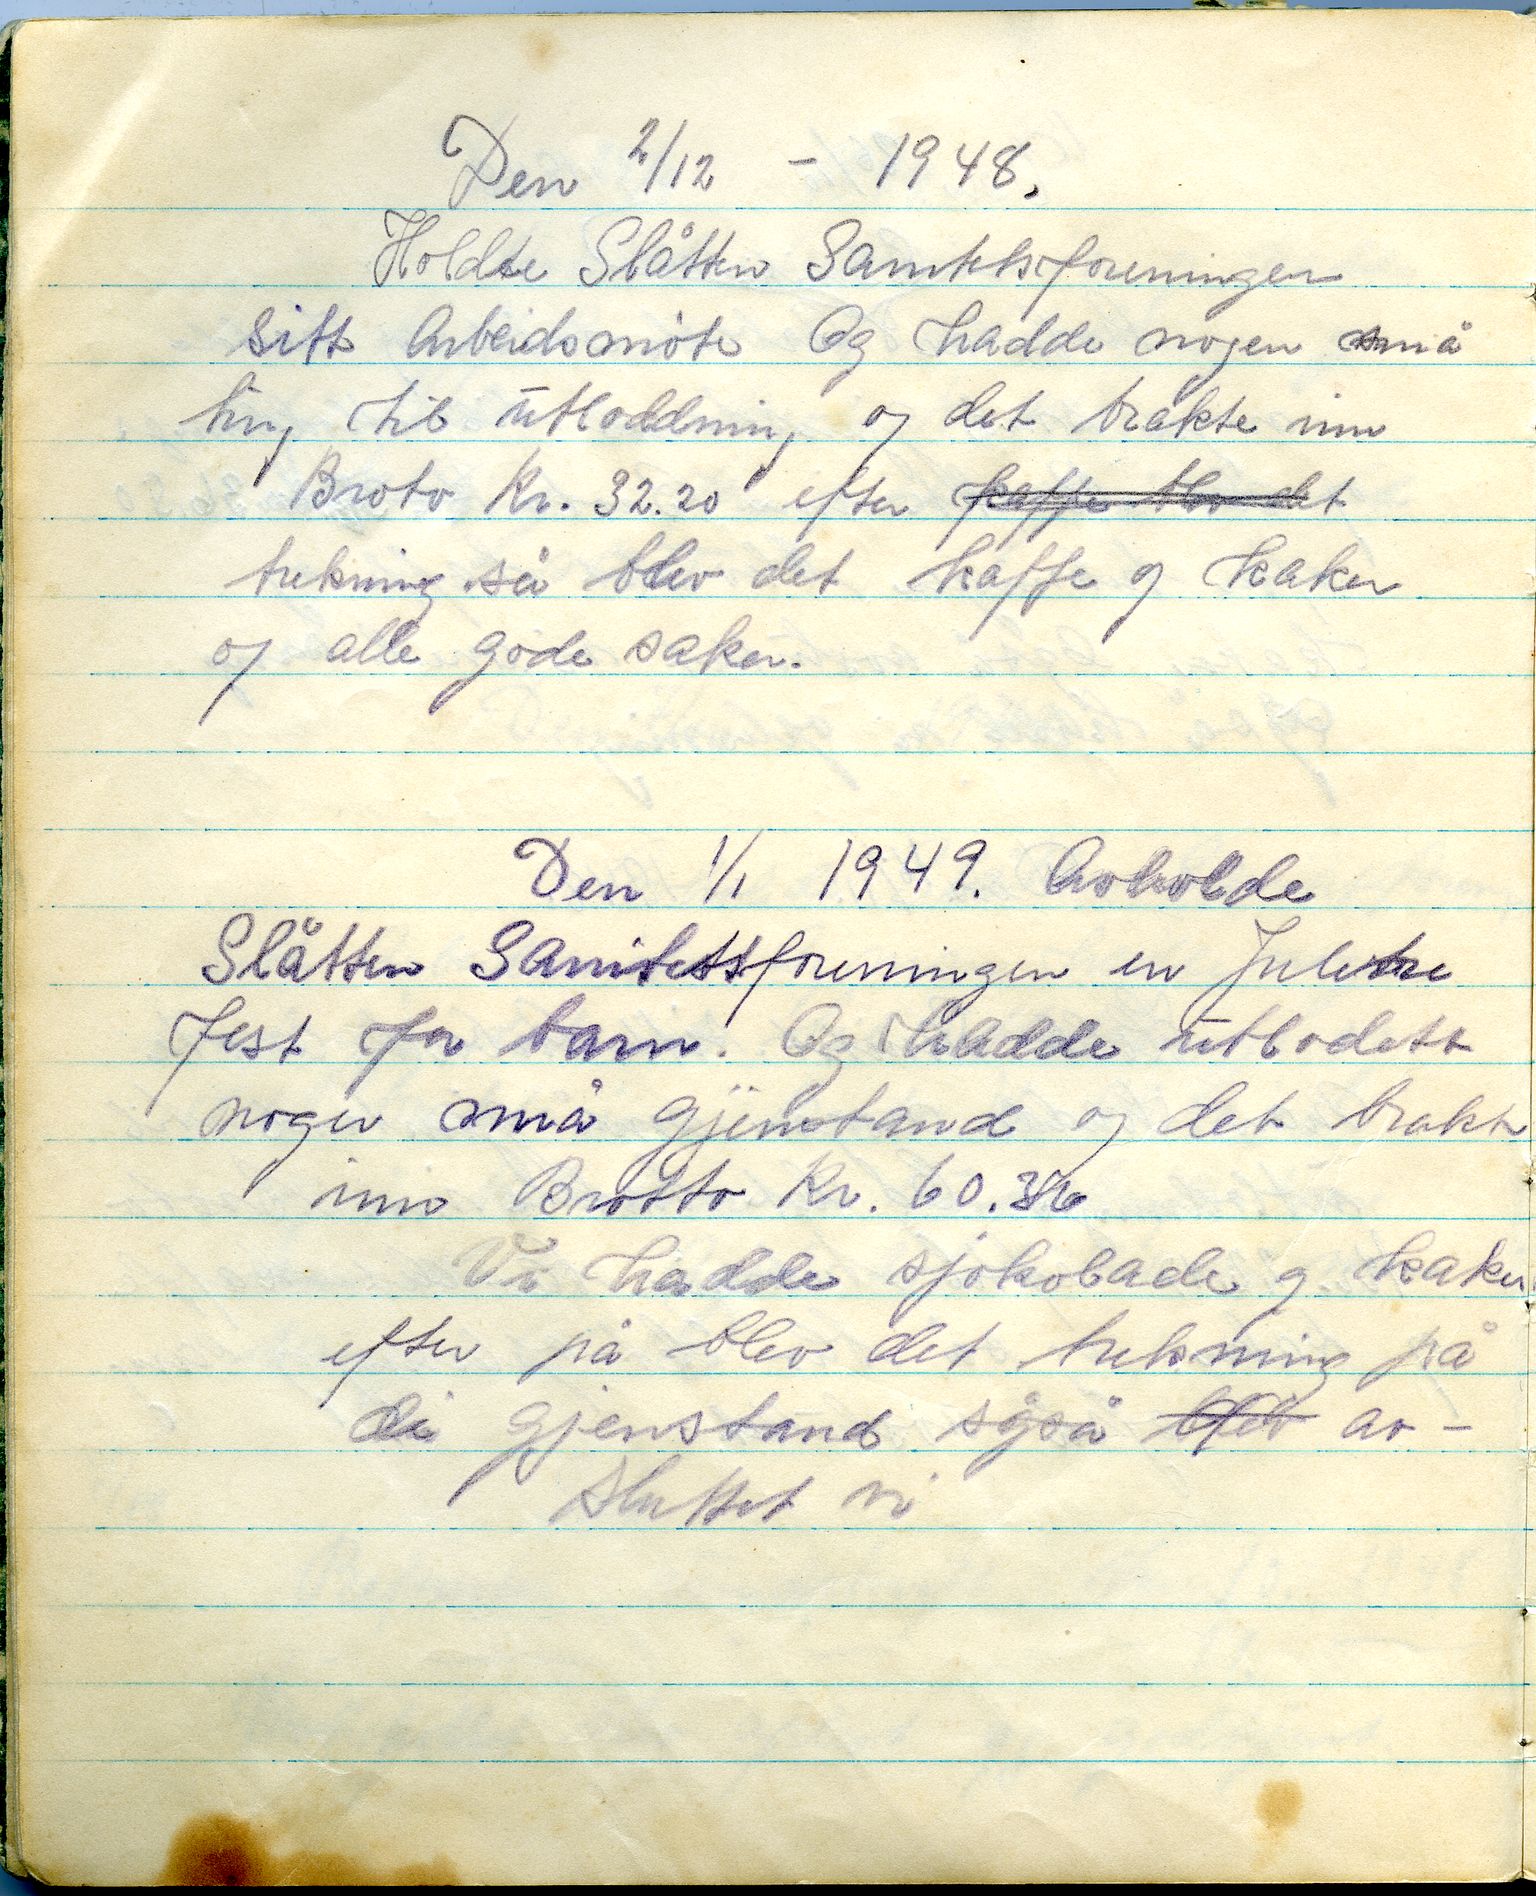 Den 2/12 - 1948.
Holdte Slåtten Sanitetsforeningen
sitt Arbeidsmöte Og hadde nogen små
ting til utloddning og det brakte inn
Broto Kr. 32.20 efter kaffe blev det
trekning så blev det kaffe og kaker
og alle gode saker.
Den 1/1 1949. Avholde
Slåtten Sanitettsforeningen en Juletre
fest for barn. Og hadde utlodett
nogen små gjenstand og det brakte
inn Brotto Kr. 60.36
Vi hadde sjokolade og kaker
efter på blev det trekning på
di gjenstand så blev av-
sluttet vi